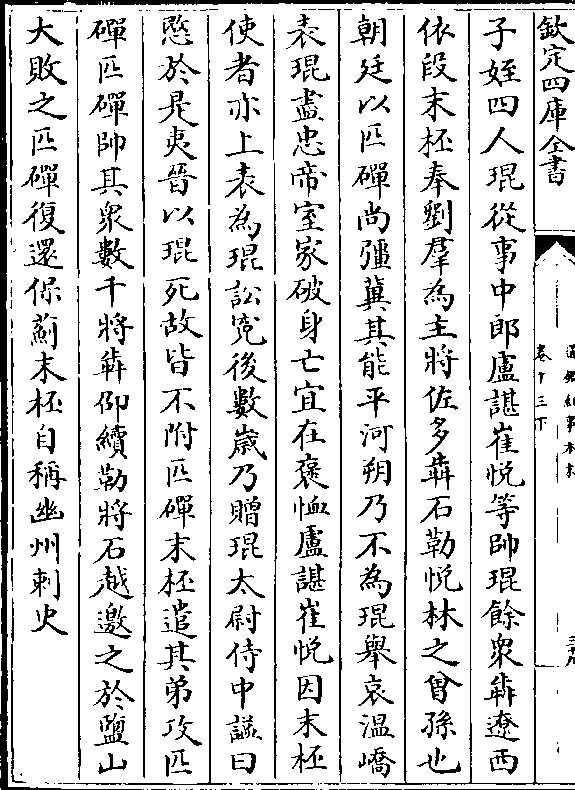 欽定四庫全書
子姪四人琨從事中郎盧諶崔悅等帥琨餘衆犇遼西
依段末柸奉劉羣為主將佐多犇石勒悅林之曾孫也
朝廷以匹磾尚彊冀其能平河朔乃不為琨舉哀温嶠
表琨盡忠帝室家破身亡宜在褒恤盧諶崔悅因末柸
使者亦上表為琨訟冤後數歲乃贈琨太尉侍中諡曰
愍於是夷晉以琨死故皆不附匹磾末柸遣其弟攻匹
磾匹磾帥其衆數千將犇卲續勒將石越邀之於鹽山
大敗之匹磾復還保薊末柸自稱幽州刺史
通鑑紀事本末
卷十三下